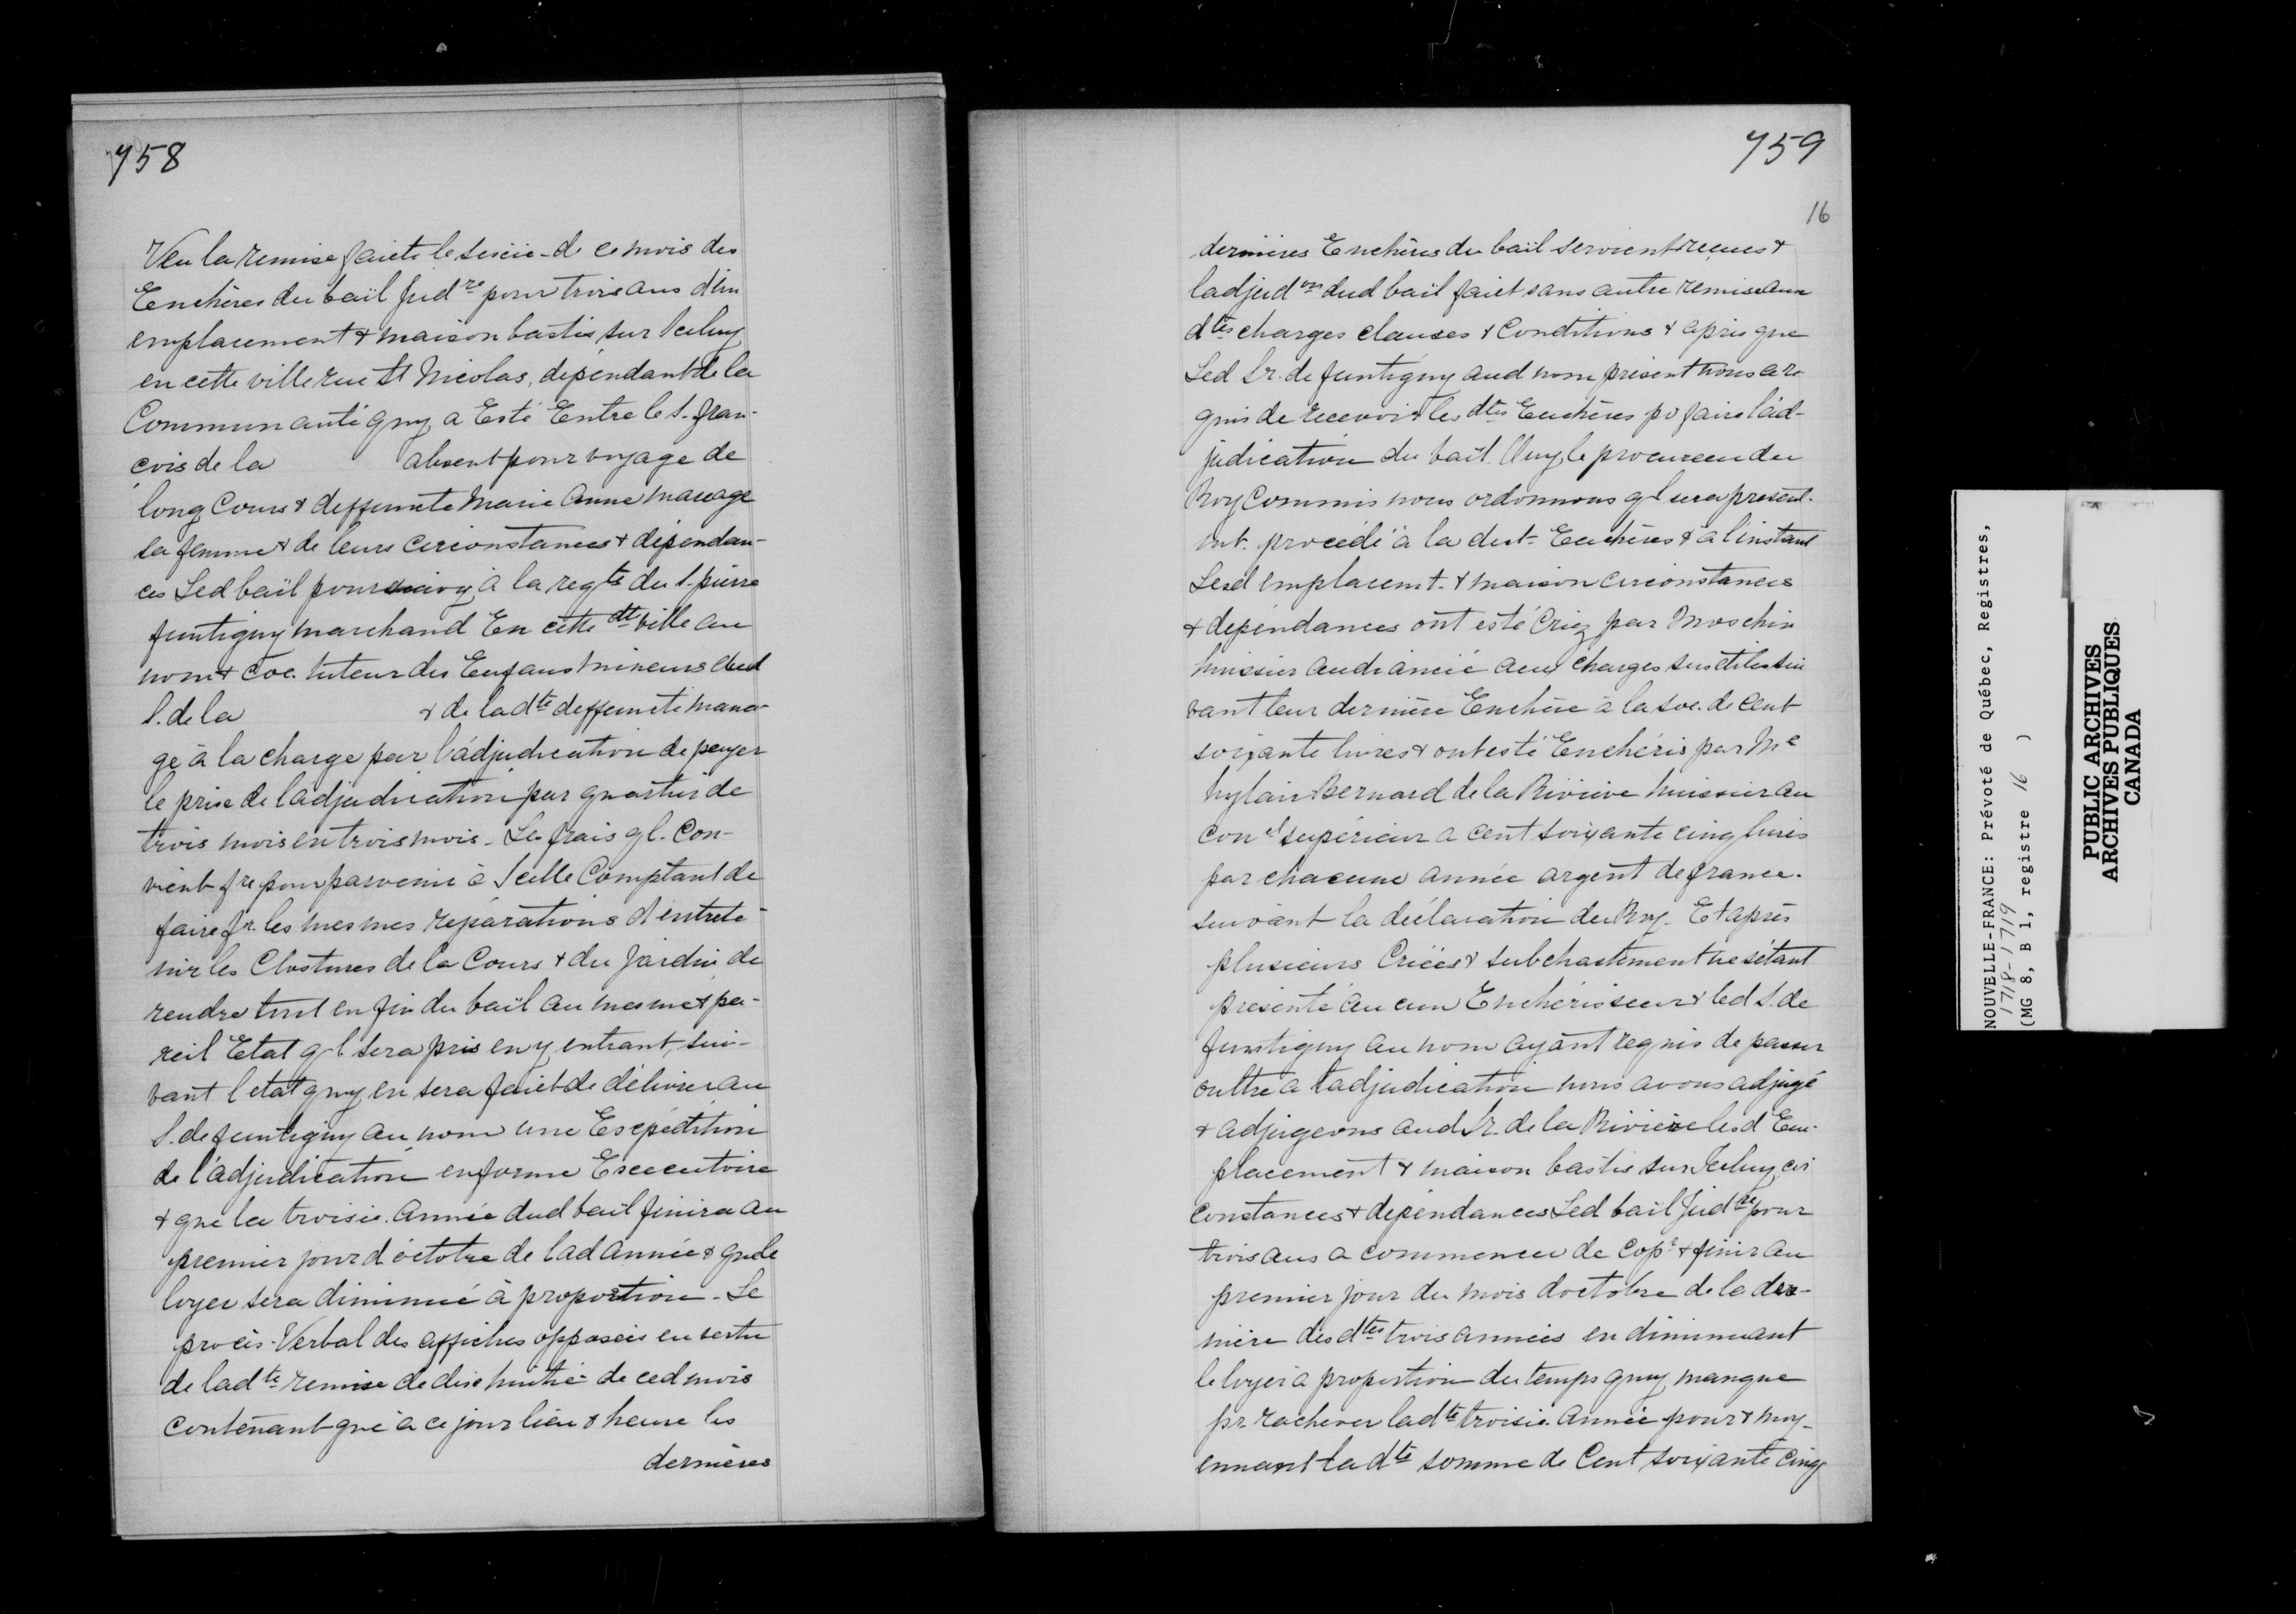 758
Veu la remise faicte le seizie- de ce mois des
Enchères du bail Judre pour trois ans d'un
emplacement & maison bastie sur Iceluy
en cette ville rue St Nicolas, dépendant de la
Communauté quy a Esté Entre le S. fran-
çois de la absent pour voyage de
long Cours & deffuncte Marie Anne
sa femme & de leurs circonstances & dépendan-
ces Led bail poursuivy à la reqte du S. pierre
funtigny marchand En cette dte ville au
nom & coe. tuteur des Enfans mineurs dud
S. de la & de ladte deffuncte mana-
ge à la charge par l'adjudication de payer
le prix de ladjudication par quartier de
trois mois en trois mois. Les frais ql. Con-
vient fre pour parvenir à Icelle Comptant de
faire fr. les mesmes reparations d'entrete-
nir les Clostures de la Cours & du Jardin de
rendre tout en fin du bail au mesme & pa-
reil Etat ql sera pris en y entrant, sui-
vant l'etat quy en sera faict de délivrer au
S. de funtigny au nom une Expédition
de l'adjudication en forme Executoire
& que la troisie. Année dud bail finira au
premier jour d'octobre de lad année & que le
loyer sera diminué à proportion. Le
procès-Verbal des affiches apposées en vertu
de ladte remise de dix huitie- de ced mois
contenant que à ce jour lieu & heure les
dernières
759
16
dernières Enchères du bail seroient reçues &
ladjudon dud bail faict sans autre remise aux
dtes charges clauses & Conditions & apres que
Led Sr. de funtigny aud nom présent nous a re-
quis de recevoir les dtes Enchères po faire l'ad-
judication du bail. Ouy le procureur du
Roy Commis nous ordonnons ql sera présent-
mt. procédé à la dect- Enchères & à l'instant
Lesd emplacemt. & maison circonstances
& dépendances ont esté Criez par Moschin
huissier audiancié aux charges susdites sui
vant leur dernière Enchère à la soe. de Cent
soixante livres & ont esté Enchéris par Me
hylair Bernard de la Rivière huissier au
conel supérieur a cent soixante cinq livres
par chacune année argent de france.
suivant la déclaration du Roy. Et après
plusieurs Criées & subchastement ne sétant
présenté aucun Enchérisseur & led S. de
funtigny au nom ayant requis de passer
outtre a l'adjudication nous avons adjugé
& adjugeons aud Sr. de la Rivière lesd Em-
placement & maison bastie sur Iceluy cir
constances & dépendances Led bail Judre pour
trois ans a commencer de & finir au
premier jour du mois doctobre de la der-
nière des dtes trois années en diminuant
le loyer a proportion du temps quy manque
pr. rachever ladte troisie. Année pour & moy-
ennant ladte somme de Cent soixante Cinq
NOUVELLE-FRANCE: Prévoté de Québec, Registres,
1718-1719
(MG 8, B 1, registre 16 )
PUBLIC ARCHIVES
ARCHIVES PUBLIQUES
CANADA